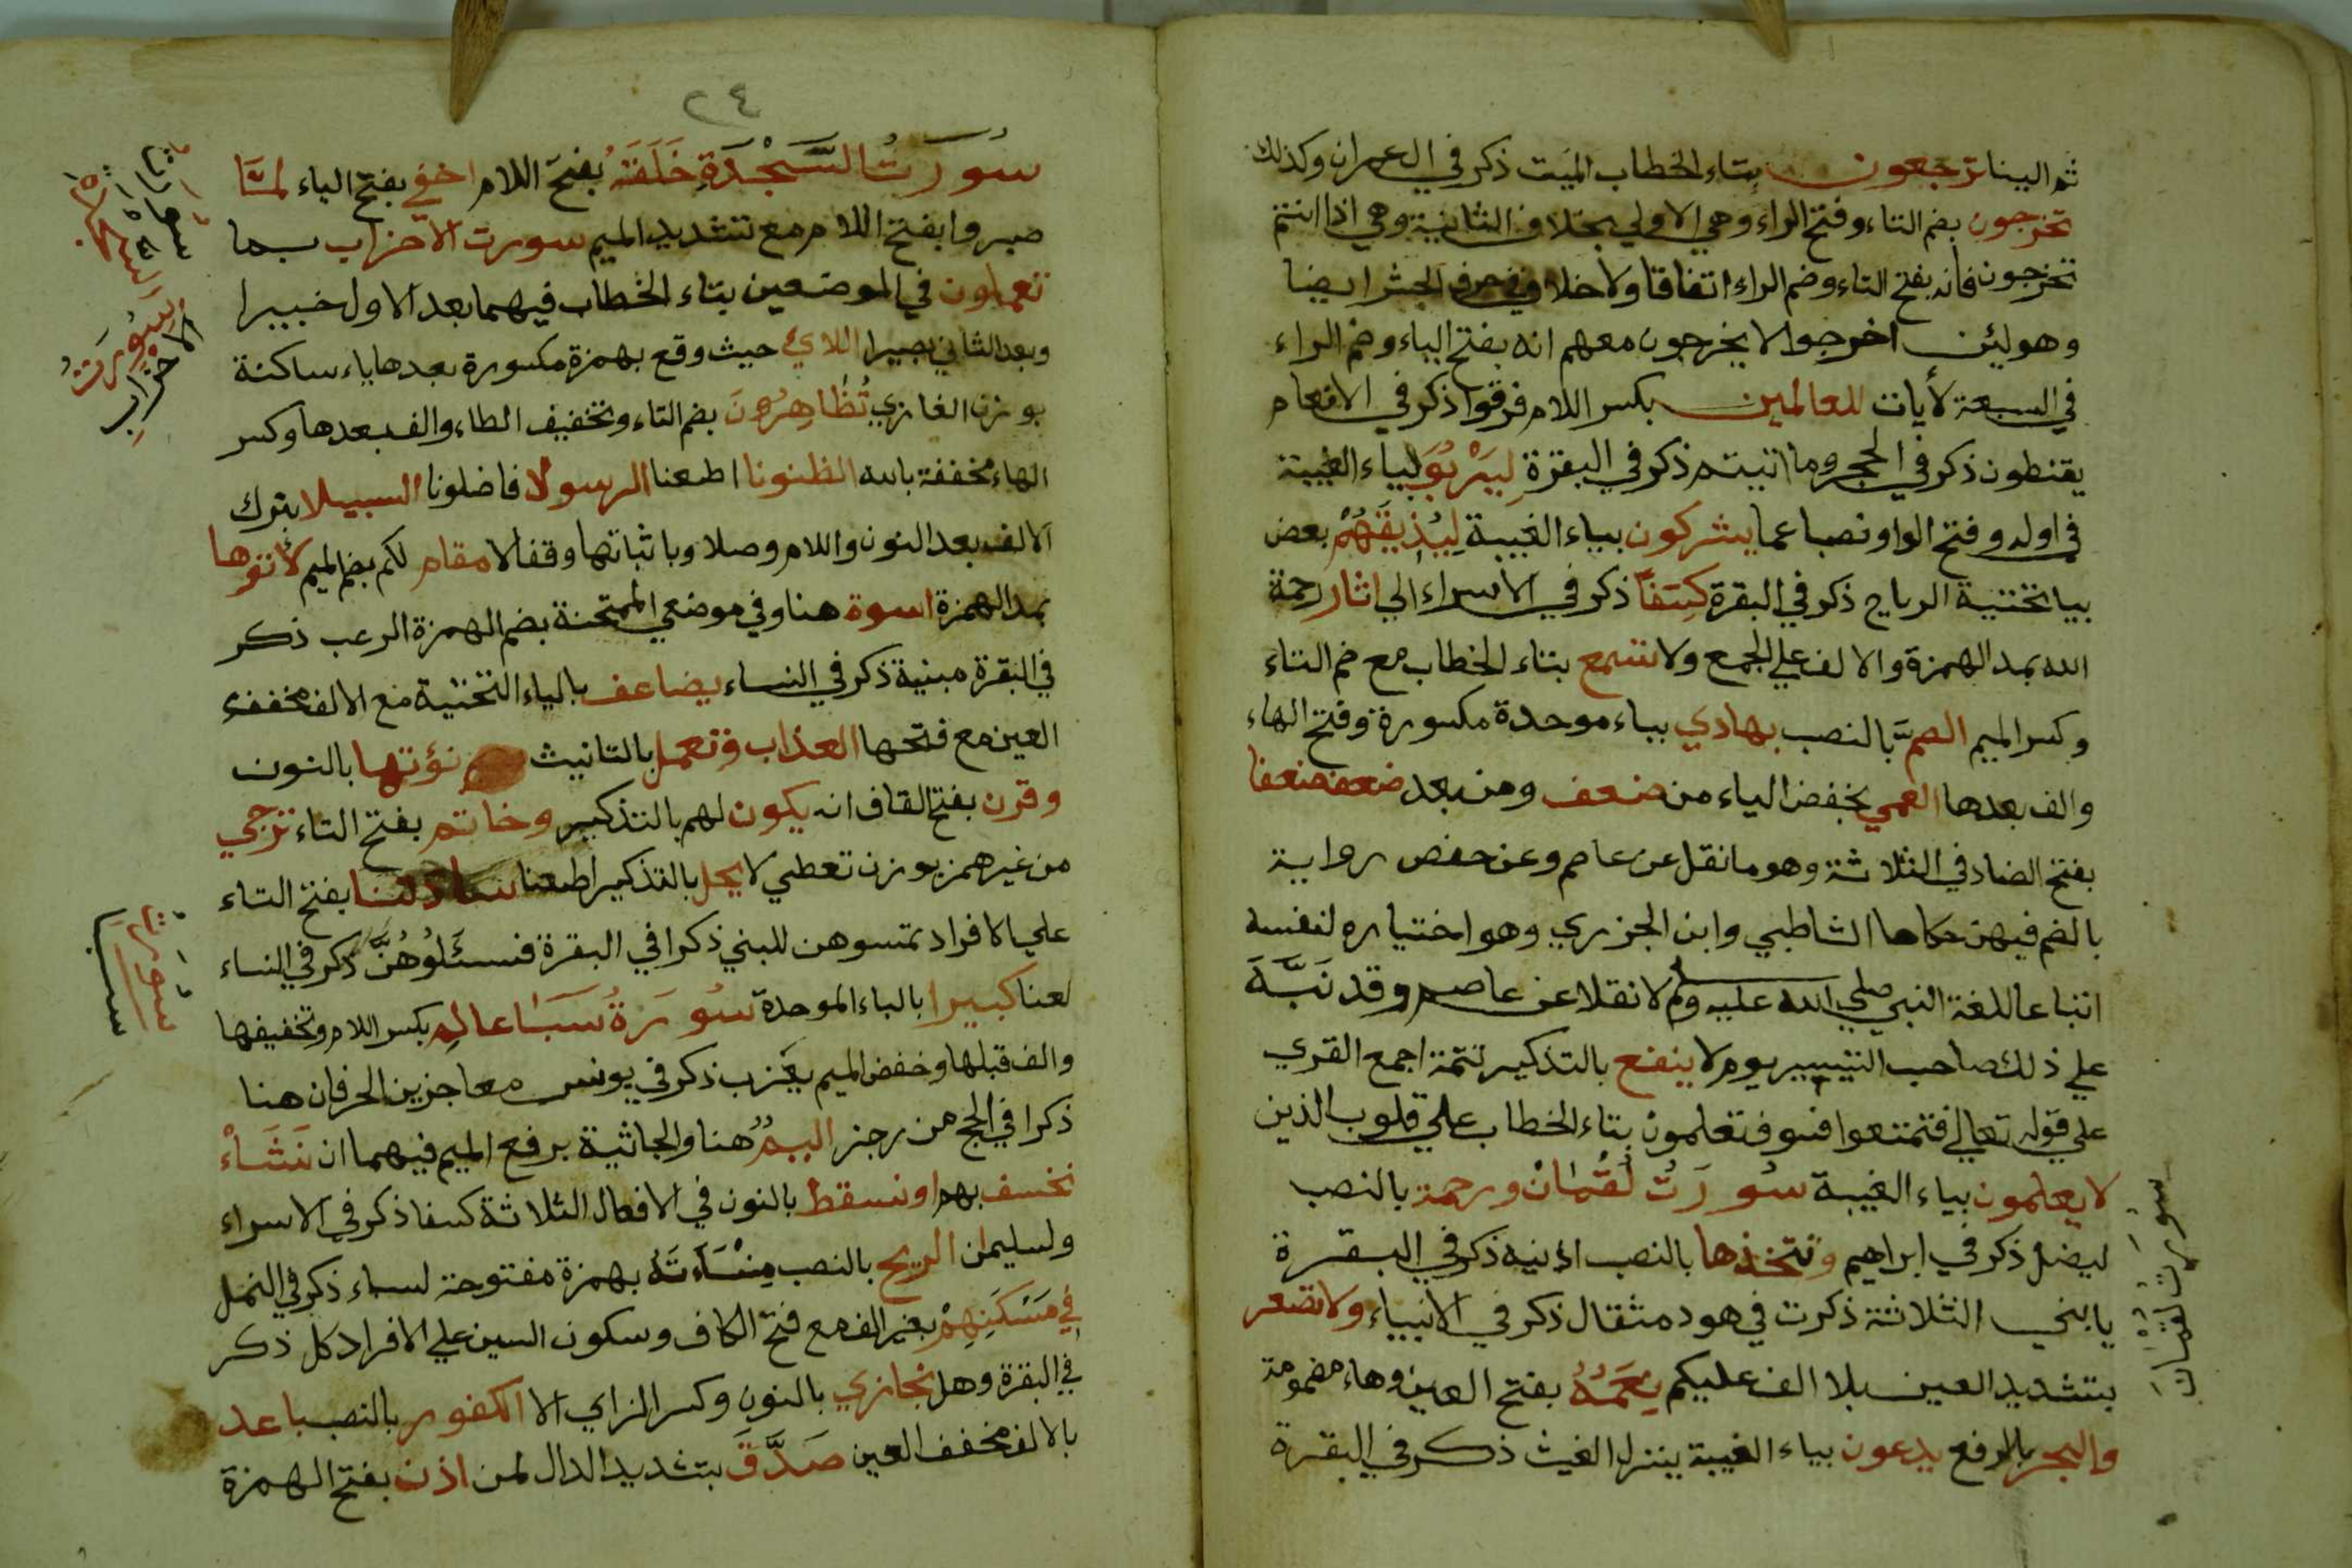 ثم الينا ترجعون بتاء الخطاب الميت ذكر في ال عمران وكذلك
تخرجون بضم التاء وفتح الراء وهي الاولي بخلاف الثانية وهي اذا انتم
تخرجون فانه بفتح التاء وضم الراء اتفاقا ولا خلاف في حرف الحشر ايضا
وهو لئن اخرجوا لا يخرجون معهم انه بفتح الياء وضم الراء
في السبعة لأيات للعالمين بكسر اللام فرقوا ذكر في الانعام
يقنطون ذكر في الحجر وما اتيتم ذكر في البقرة لِيَرْبُوَ بياء الغيبة
في اوله وفتح الواو نصبا عما يشركون بياء الغيبة لِيُذِيقَهُمْ بعض
بيا تختية الرياح ذكر في البقرة كِسَفًا ذكر في الاسراء الي اثار رحمة
الله بمد الهمزة والالف علي الجمع ولا تسمع بتاء الخطاب مع ضم التاء
وكسر الميم الصمَّ بالنصب بهادي بباء موحدة مكسورة وفتح الهاء
والف بعدها العمي بخفض الياء من ضعف ومن بعد ضعف ضعفا
بفتح الضاد في الثلاثة وهو ما نقل عن عاصم وعن حفص رواية
بالضم فيهن حكاها الشاطبي وابن الجزري وهو اختياره لنفسه
اتباعا للغة النبي صلي الله عليه وسلم لا نقلا عن عاصم وقد نَبَّهَ
علي ذلك صاحب التيسير يوم لا ينفع بالتذكير تتمة اجمع القري
علي قوله تعالي فتمتعوا فسوف تعلمون بتاء الخطاب علي قلوب الذين
لا يعلمون بياء الغيبة سُورَتُ لُقْمَانْ ورحمة بالنصب
ليضل ذكر في ابراهيم وتتخذها بالنصب اذنيه ذكر في البقرة
يابني الثلاثة ذكرت في هود مثقال ذكر في الانبياء ولا تصعر
بتشديد العين بلا الف عليكم نِعَمَهُ بفتح العين وهاء مضمومة
والبحر بالرفع يدعون بياء الغيبة ينزل الغيث ذكر في البقرة
سورت لقمان
٢٤
سُورَتُ السَّجْدَةِ خَلَقَهُ بفتح اللام اخفي بفتح الياء لمَّا
صبروا بفتح اللام مع تشديد الميم سورت الاحزاب بما
تعملون في الموضعين بتاء الخطاب فيهما بعد الاول خبيرا
وبعد الثاني بصيرا اللائي حيث وقع بهمزة مكسورة بعدها ياء ساكنة
بوزن الغازي تُظَاهِرُونَ بضم التاء وتخفيف الظاء والف بعدها وكسر
الهاء مخففة بالله الظنونا اطعنا الرسولا فاضلونا السبيلا بترك
الالف بعد النون واللام وصلا وباثباتها وقفا لا مقام لكم بضم الميم لأتوها
بمد الهمزة اسوة هنا وفي موضعي الممتحنة بضم الهمزة الرعب ذكر
في البقرة مبنية ذكر في النساء يضاعف بالياء التختية مع الالف مخففى
العين مع فتحها العذاب وتعمل بالتانيث نؤتها بالنون
وقرن بفتح القاف ان يكون لهم بالتذكير وخاتم بفتح التاء ترجي
من غير همز بوزن تعطي لا يحل بالتذكير اطعنا سادتنا بفتح التاء
علي الافراد تمسوهن للبني ذكرا في البقرة فسئَلُوهُنَّ ذكر في النساء
لعنا كبيرا بالباء الموحدة سُورَةُ سَبَا عالِم بكسر اللام وتخفيفها
والف قبلها وخفض الميم يعزب ذكر في يونس معاجزين الحرفان هنا
ذكرا في الحج من رجز اليمٌ هنا والجاثية برفع الميم فيهما ان نَشَاْء
نخسف بهم او نسقط بالنون في الافعال الثلاثة كسفا ذكر في الاسراء
ولسليمان الريح بالنصب مِنْسَأَتَهُ بهمزة مفتوحة لسباء ذكر في النمل
في مَسْكَنِهِمْ بغير الف مع فتح الكاف وسكون السين علي الافراد كل ذكر
في البقرة وهل نجازي بالنون وكسر الزاي الا الكفور بالنصب باعد
بالالف مخفف العين صَدَّقَ بتشديد الدال لمن اذن بفتح الهمزة
سُورَتُ
الاحزاب
سورت
سبا